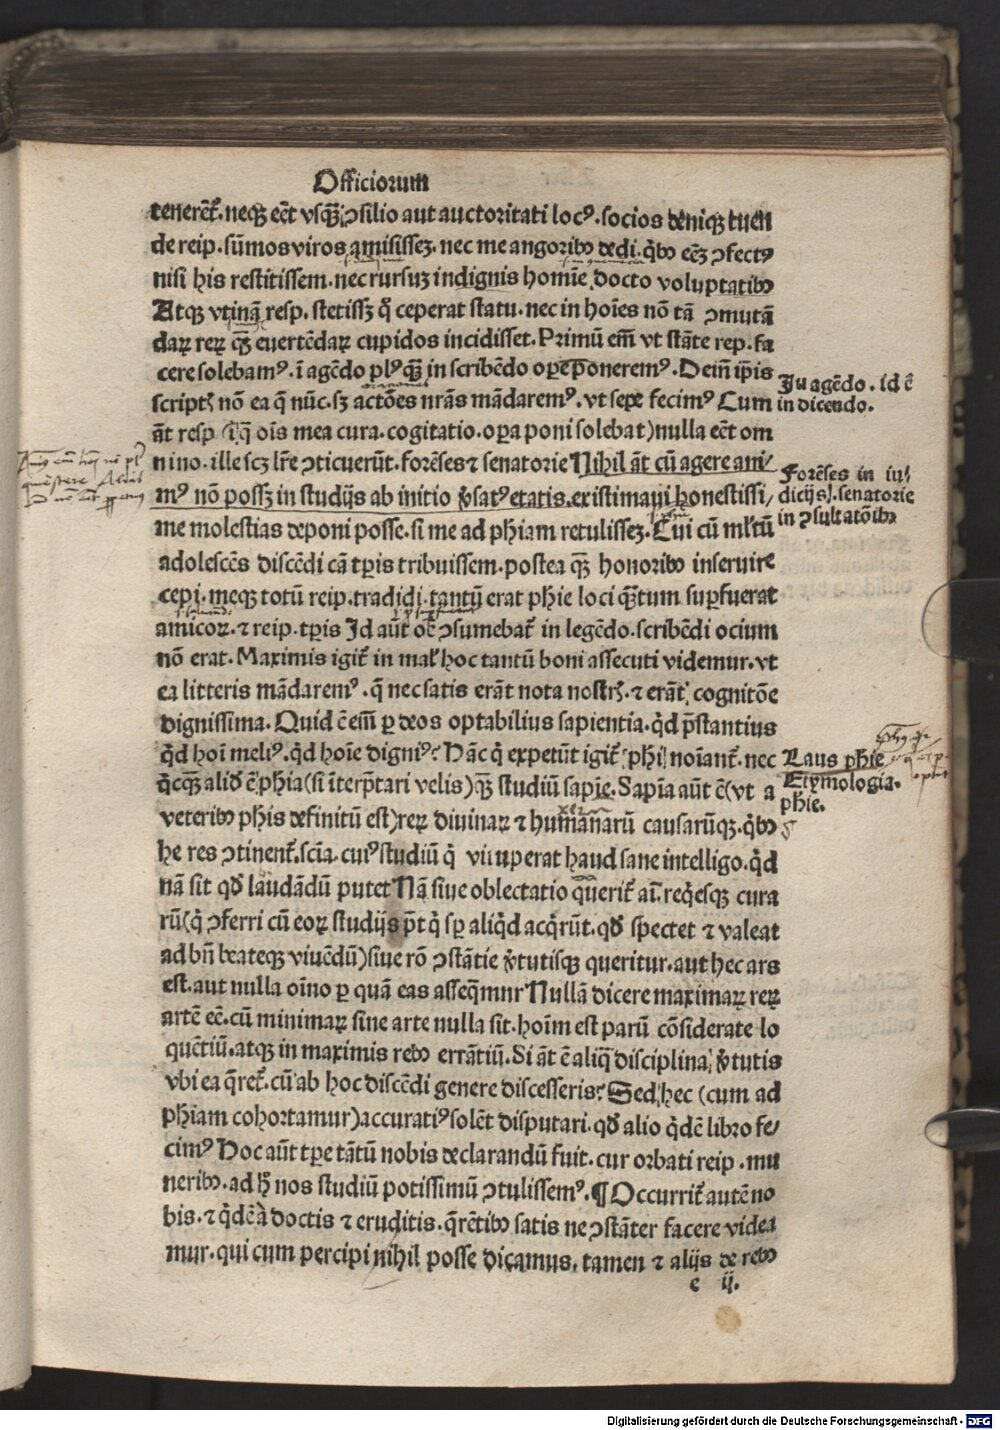 Officiorum
tenerēt᷒. neqꝫ eēt vsqᷓꝫ ꝯsilio aut auctoritati locꝰ. socios deniqꝫ tuen
de reip. sūmos viros amisissez. nec me angoribꝰ dedi. q̇bꝰ eēꝫ ꝯfectꝰ
nisi his restitissem. nec rursuz indignis homīe docto voluptatibꝰ
Atqꝫ vtinā resp. stetissꝫ q̄ ceperat statu. nec in hoīes nō tā ꝯmutā
daꝝ reꝝ qᷓꝫ euertēdaꝝ cupidos incidisset. Primū em̄ vt stāte rep. fa
cere solebamꝰ. ī agēdo plꝰ qᷓꝫ in scribēdo oꝑe ponēremꝰ. Dein̄ ip̄is
scriptꝭ nō ea q̄ nūc. sꝫ actōes nr̄as mādaremꝰ. vt sepe fecimꝰ Cum
āt resp (ī q̄ oīs mea cura. cogitatio. oꝑa poni solebat) nulla eēt om
nino. ille scꝫ lr̄e ꝯticuerūt. forēses ⁊ senatorie Nihil āt cū agere ani⸗
mꝰ nō possꝫ in studijs ab initio v̓satꝰ etatis. existimaui honestissi⸗
me molestias deponi posse. si me ad phiam retulissez. Cui cū ml̓tū
adolescēs discēdi cā tꝑis tribuissem. postea qᷓꝫ honoribꝰ inseruire
cepi. meqꝫ totū reip. tradidi. tantū erat phie loci qᷓꝫtum suꝑfuerat
amicoꝝ. ⁊ reip. tꝑis Id aūt oē ꝯsumebat᷒ in legēdo. scribēdi ocium
nō erat. Maximis igit᷒ in mal̓ hoc tantū boni assecuti videmur. vt
ea litteris mādaremꝰ. q̄ nec satis erāt nota nostrꝭ. ⁊ erāt cognitōe
dignissima. Quid ē em̄ ꝑ deos optabilius sapientia. qd̓ p̄stantius
qd̓ hoī meliꝰ. qd̓ hoīe digniꝰ? Hāc q̄ expetūt igit᷒ phi noīant᷒. nec
q̇cqᷓꝫ alid̓ ē phia (si īterp̄tari velis) qᷓꝫ studiū sapīe. Sapīa aūt ē (vt a
veteribꝰ phis definitū est) reꝝ diuinaꝝ ⁊ humanarū causarūqꝫ. q̇bꝰ
he res ꝯtinent᷒. scīa. cuiꝰ studiū q̇ vituperat haud sane intelligo. qd̓
nā sit qd̓ laudādū putet Nā siue oblectatio querit᷒ aī. req̇esqꝫ cura
rū (q̄ ꝯferri cū eoꝝ studijs pt̄ q̇ sꝑ aliqd̓ acq̇rūt. qd̓ spectet ⁊ valeat
ad bn̄ beateqꝫ viuēdū) siue rō ꝯstātie v̓tutisqꝫ queritur. aut hec ars
est. aut nulla oīno ꝑ quā eas asseq̄mur Nullā dicere maximaꝝ reꝝ
artē eē. cū minimaꝝ sine arte nulla sit. hoīm est parū cōsiderate lo
quētiū. atqꝫ in maximis rebꝰ errātiū. Si āt ē aliq̄ disciplina v̓tutis
vbi ea q̄ret᷒. cū ab hoc discēdi genere discesseris? Sed hec (cum ad
phiam cohortamur) accuratiꝰ solēt disputari. qd̓ alio q̇dē libro fe⸗
cimꝰ Hoc aūt tꝑe tātū nobis declarandū fuit. cur orbati reip. mu
neribꝰ. ad h̄ nos studiū potissimū ꝯtulissemꝰ. ¶ Occurrit᷒ autē no
bis. ⁊ q̇dē à doctis ⁊ eruditis. q̄rētibꝰ satis ne ꝯstāter facere videa
mur. qui cum percipi nihil posse dicamus. tamen ⁊ alijs de rebꝰ
e ij.
In agēdo. id ē
in dicendo.
Forēses in iu⸗
dicijs). senatorie
in ꝯsultatōibꝰ
Laus phie
Etymologia.
phie.
Digitalisierung gefördert durch die Deutsche Forschungsgemeinschaft - DFG